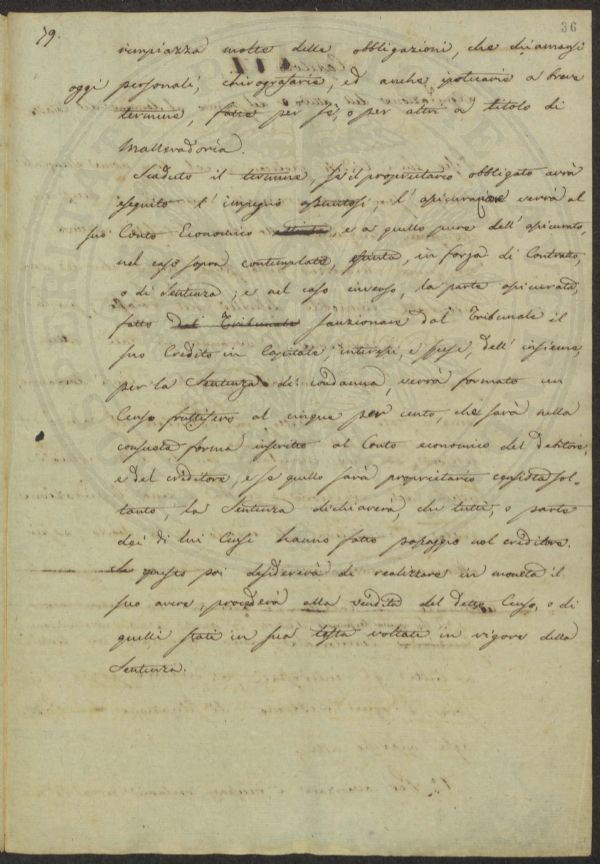 79.
36
rimpiazza molte delle obbligazioni, che chiamansi
oggi personali, chirografarie, ed anche ipotecarie a breve
termine, fatte per se, o per altri a titolo di
Mallevadoria.
Scaduto il termine, se il proprietario obbligato avrà
eseguito l'impegno assuntosi, l'assicurazione verrà al
suo Conto Economico, e a quello pure dell'assicurato,
nel caso sopra contemplato, spinta, in forza di Contratto,
o di Sentenza; e nel caso inverso, la parte assicurata,
fatto dal Tribunale sanzionare dal Tribunale il
suo Credito in Capitale, interessi, e spese, dell'insieme,
per la Sentenza di condanna, verrà formato un
Censo fruttifero al cinque per cento, che sarà nella
consueta forma inscritto al Conto economico del Debitore,
e del creditore, e se quello sarà proprietario censista sol-
tanto, la Sentenza dichiarerà, che tutti, o parte
dei di lui Censi hanno fatto passaggio nel creditore.
Se questo poi desidererà di realizzare in moneta il
suo avere, procederà alla vendita del detto Censo, o di
quelli stati in sua testa voltati in vigore della
Sentenza.